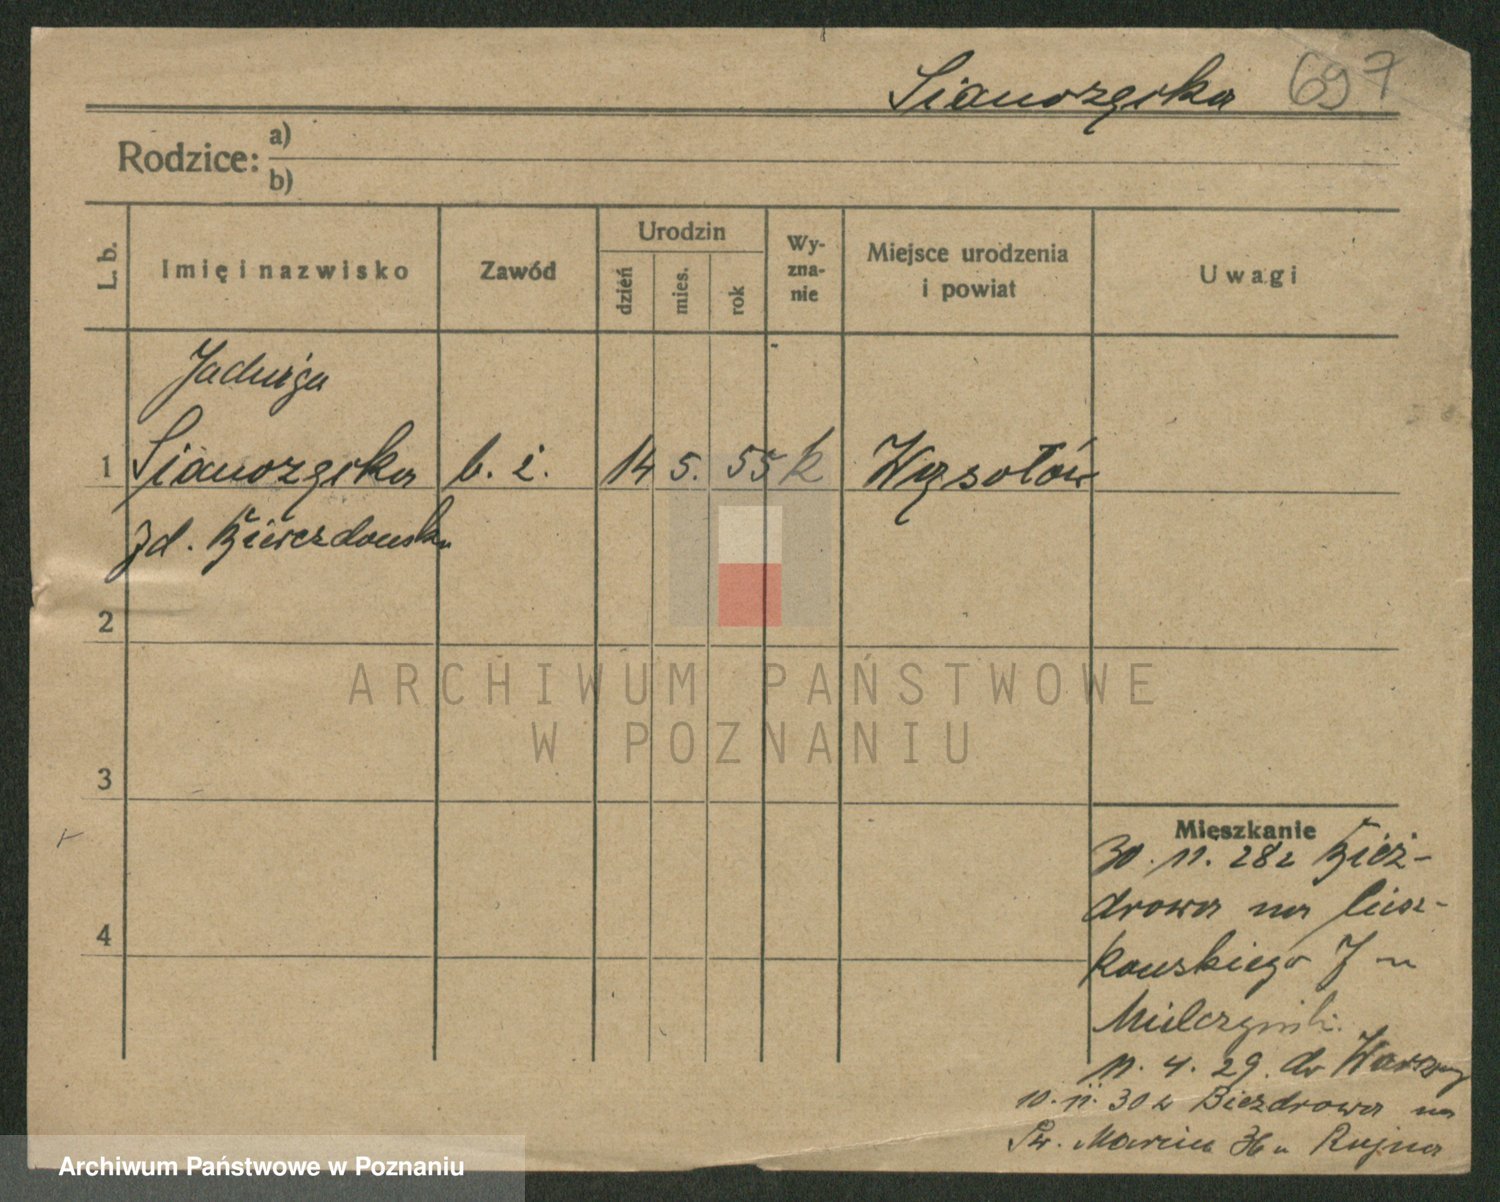 Sianozęcka 697
Rodzice: a)
b)
L. b. Imię i nazwisko Zawód Urodzin dzień mies. rok Wy-zna-nie Miejsce urodzenia i powiat Uwagi
Jadwiga
1 Sianozęcka b. z. 14 5. 55 k
zd.
2
ARCHIWUM PAŃSTWOWE
W POZNANIU
3
Mieszkanie
30. 11. 28 z Bież-
drowa na
4
11. 4. 29. do Warszawy
10. 11. 30 z Biezdrowa na
Św. Marcin 36 u
Archiwum Państwowe w Poznaniu